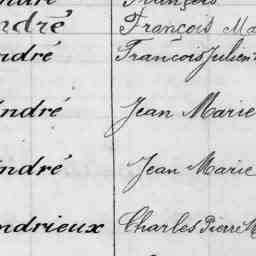 ndré François Ma
ndré François Julien
ndré Jean Marie
ndré Jean Marie
ndrieux Charles Pierre M